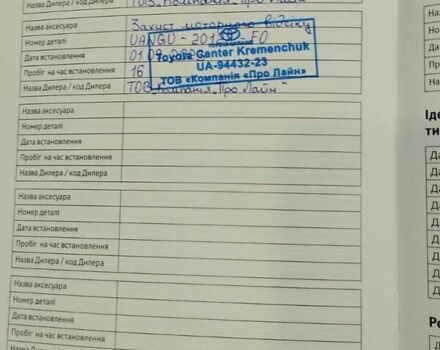 Назва Дилера / код Дилера ТОВ „Компанія „Про Лайн"
Назва аксесуара Захист моторного відсіку
Номер деталі
Дата встановлення
Пробіг на час встановлення 16
Назва Дилера / код Дилера ТОВ „Компанія „Про Лайн"
Toyota Center Kremenchuk
UA-94432-23
ТОВ «Компанія «Про Лайн»
Назва аксесуара
Номер деталі
Дата встановлення
Пробіг на час встановлення
Назва Дилера / код Дилера
Назва аксесуара
Номер деталі
Дата встановлення
Пробіг на час встановлення
Назва Дилера / код Дилера
Назва аксесуара
Номер деталі
Дата встановлення
Пробіг на час встановлення
Назва Дилера / код Дилера
Іде
ти
Да
Да
Да
Ре